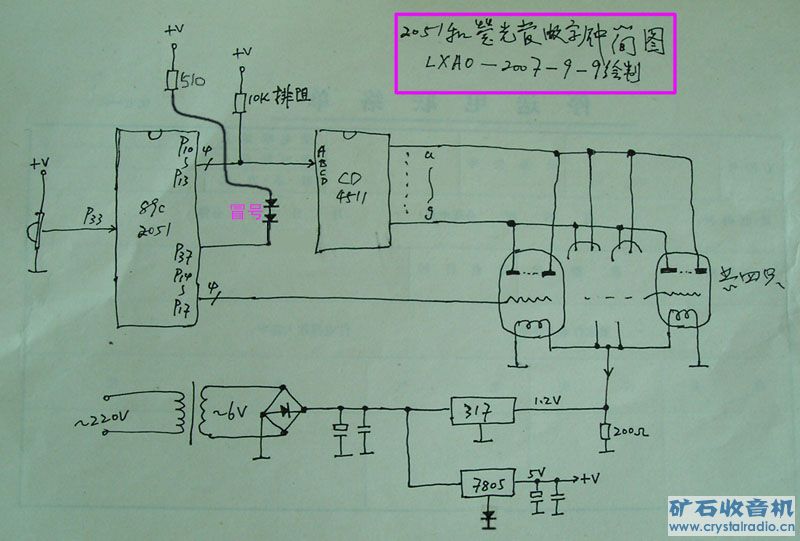 2051和荧光管数字钟简图
LXAO-2007-9-9绘制
+V
510
+V
10K排阻
+V
P33
89C
2051
P10
S
P13
P37
P14
S
P17
4
4
冒号
A
B
C
D
CD
4511
a
g
共四只
~220V
~6V
317
1.2V
200Ω
7805
5V
+V
矿石收音机
www.crystalradio.cn